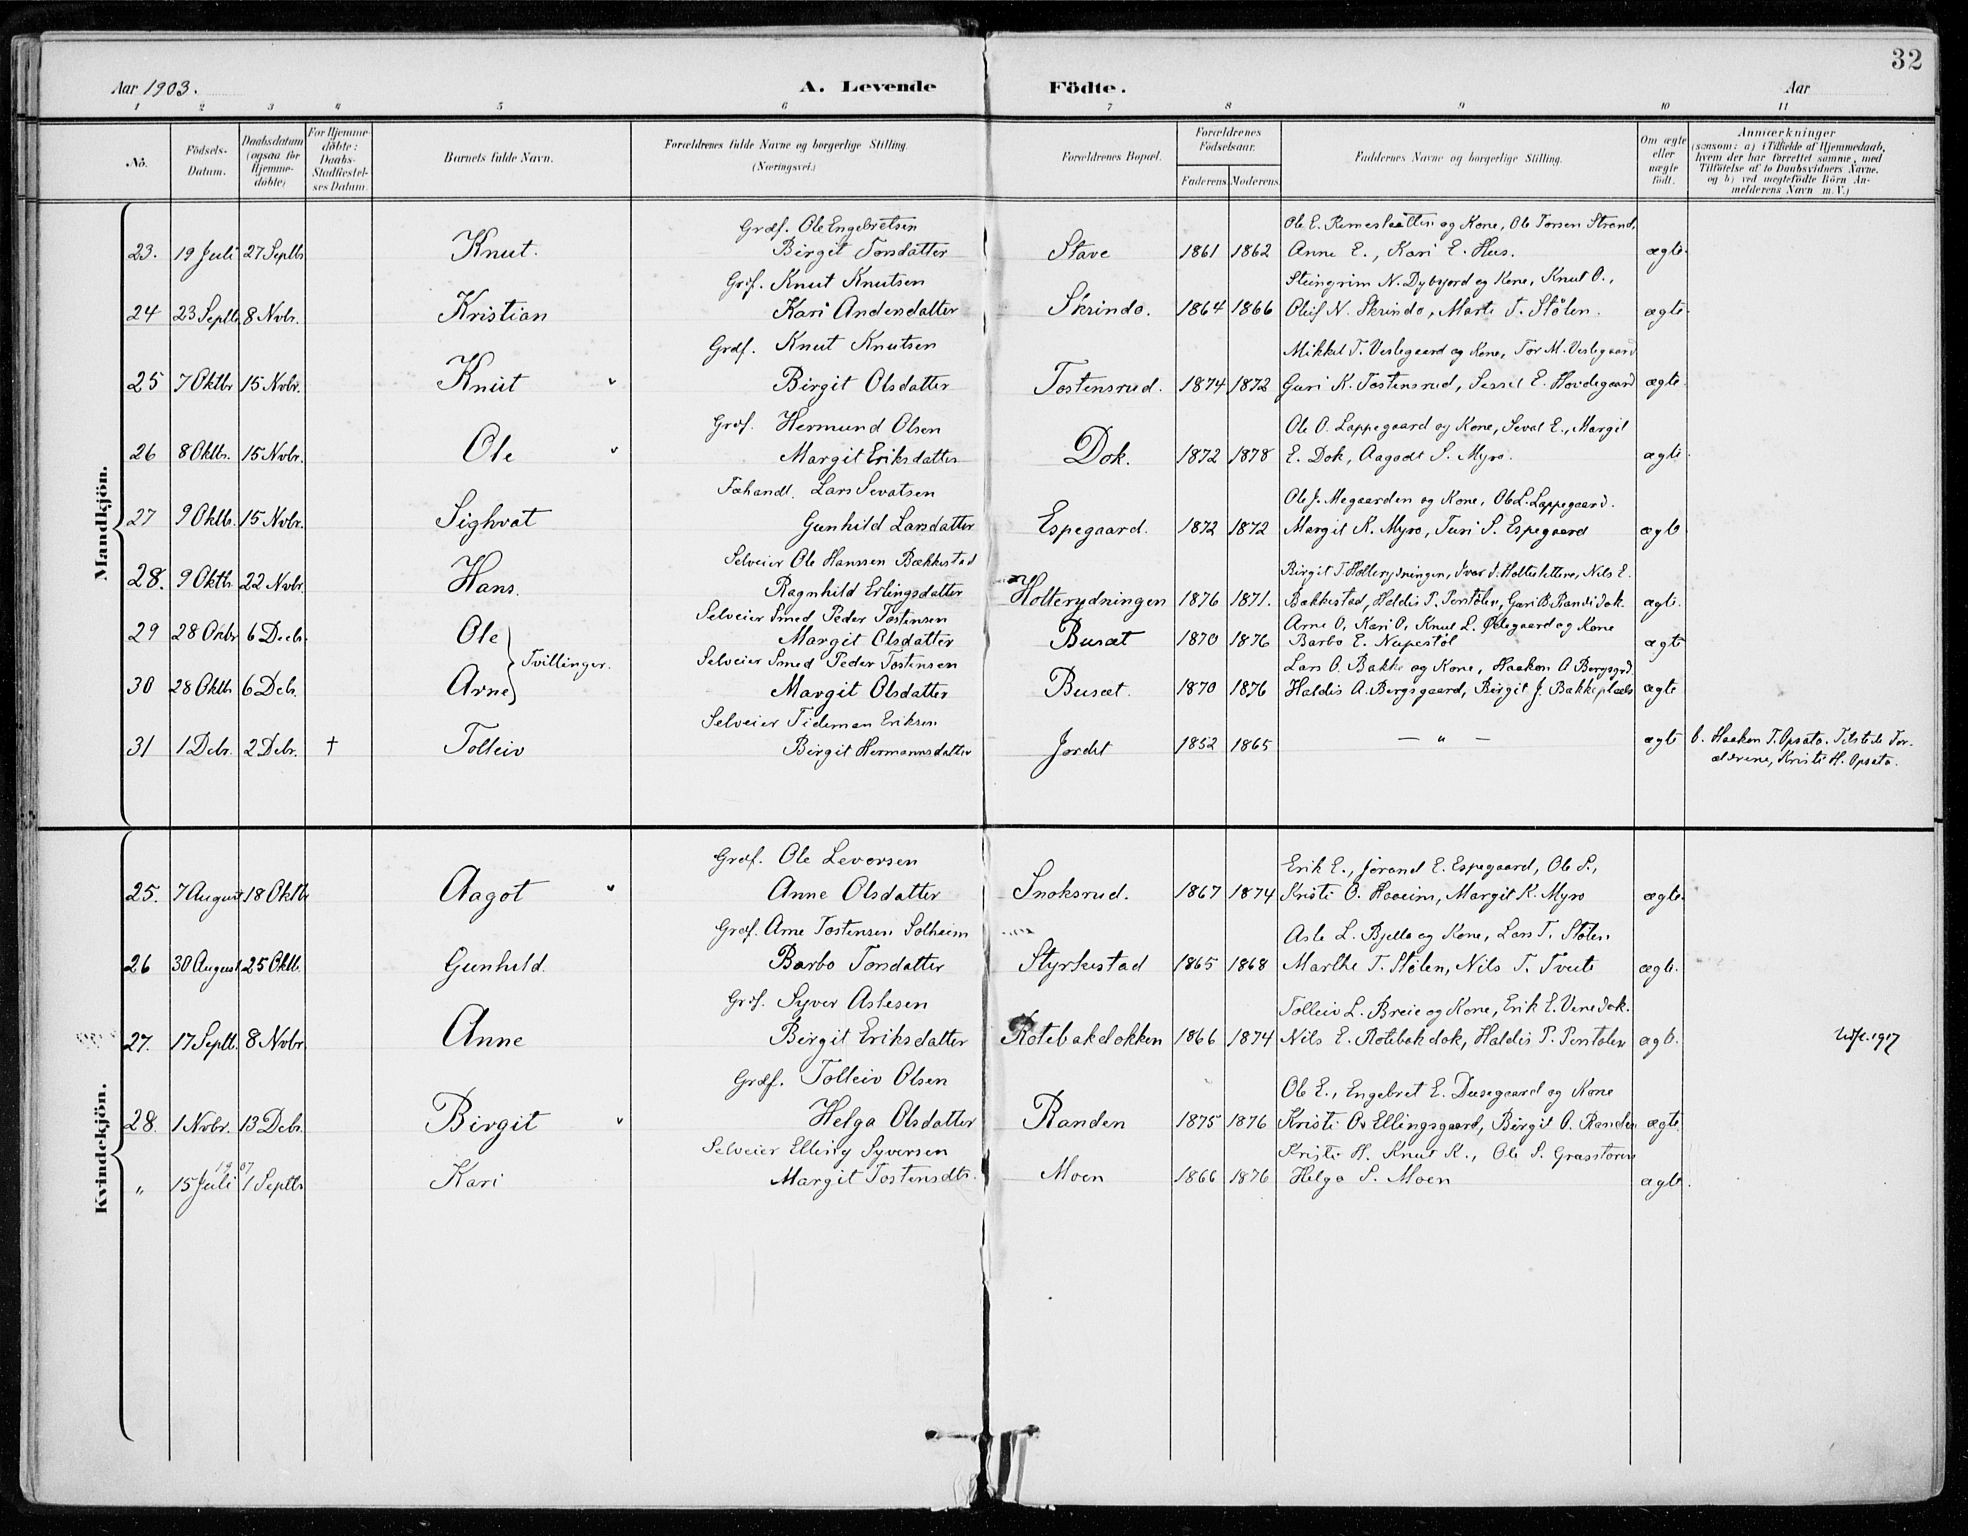 32
Aar 1903. A. Levende Födte. Aar
1 2 3 4 5 6 7 8 9 10 11
No. Födsels-Datum. Daabsdatum (ogsaa for Hjemme-döbte) For Hjemme-döbte: Daabs-Stadfæstel-ses Datum. Barnets fulde Navn. Forældrenes fulde Navne og borgerlige Stilling. (Næringsvei.) Forældrenes Bopæl. Forældrenes Födselsaar. Faderens. Moderens. Faddernes Navne og borgerlige Stilling. Om ægte eller uægte födt. Anmærkninger (saasom: a) i Tilfælde af Hjemmedaab, hvem der har forrettet samme, med Tilföielse af to Daabsvidners Navne, og b) ved uægtefödte Börn An-melderens Navn m. V.)
Mandkjön.
Grdf. Ole Engebretsen Ole E. Remesløtten og Kone, Ole Torsen Strand,
23. 19 Juli 27 Septb. Knut. Birgit Torsdatter Stave 1861 1862 Anne E., Kari E. Hus. ægte.
Grdf. Knut Knutsen Steingrim N. Dybsjord og Kone, Knut O.,
24 23 Septb. 8 Nvbr. Kristian Kari Andersdatter Skrindo. 1864 1866 Oleif N. Skrindo, Marte T. Stölen. ægte.
Grdf. Knut Knutsen Mikkel T. Veslegaard og Kone, Tor M. Veslegaard
25 7 Oktbr 15 Nvbr. Knut Birgit Olsdatter Tostensrud. 1874 1872 Guri K. Tostensrud, Sessel E. Hovdegaard ægte.
Grdf. Hermund Olsen Ole O. Lappegaard og Kone, Seval E., Margit
26 8 Oktbr. 15 Nvbr. Ole Margit Eriksdatter Dok. 1872 1878 E. Dok, Aagodt S. Myro. ægte.
Fæhandl. Lars Sevatsen Ole J. Megaarden og Kone, Ole L. Lappegaard.
27 9 Oktb. 15 Nvbr. Sighvat Gunhild Larsdatter Espegaard. 1872 1872 Margit K. Myro, Turi S. Espegaard ægte
Selveier Ole Hanssen Bækkestad Birgit T. Holterydningen, Ivar J. Nils E.
28. 9 Oktb. 22 Nvbr Hans. Ragnhild Erlingsdatter Holterydningen 1876 1871. Bakkestad, Haldis P. Pentolen, Guri B. Randi dok. ægte.
Selveier Smed Peder Tostensen Arne O, Kari O, Knut L. Ødegaard og Kone
29 28 Oktbr 6 Decb. Ole Tvillinger. Margit Olsdatter Busæt 1870 1876 Barbo E. Nupestöl ægte
Selveier Smed Peder Tostensen Lars O. Bakke og Kone, Haakon A Bergsgrd.
30 28 Oktb. 6 Debr. Arne Margit Olsdatter Busæt. 1870 1876 Haldis A. Bergsgaard, Birgit J. Bakkeplads ægte
Selveier Tideman Eriksen
31 1 Debr. 2 Debr. † Tolleiv Birgit Hermannsdatter Jordet 1852 1865 — „ — ægte b. Haaken T. Opsata. Tilstede For-
ældrene, Kristi H. Opsata.
Kvindekjön.
Grdf. Ole Levorsen Erik E., Jörand E. Espegaard, Ole S.,
25. 7 August 18 Oktb. Aagot Anne Olsdatter Snoksrud. 1867 1874 Kristi O. Haaeim, Margit K. Myro ægte.
Grdf. Arne Tostensen Solheim Asle L. Bjella og Kone, Lars T. Stölen
26 30 August 25 Oktb. Gunhild. Barbo Torsdatter Styrkestad 1865 1868 Marthe T. Stölen, Nils T. Tveite ægte.
Grdf. Syver Aslesen Tolleiv L. Breie og Kone, Erik E. Venedok.
27. 17 Septb. 8 Nvbr. Anne Birgit Eriksdatter Rotebakdokken 1866 1874 Nils E. Rotebakdok, Haldis P. Pentolen ægte. Udfl. 1917
Grdf. Tolleiv Olsen Ole E., Engebret E. Dusegaard og Kone
28. 1 Nvbr. 13 Debr. Birgit Helga Olsdatter Randen 1875 1876 Kristi O. Ellingsgaard, Birgit O. Randen ægte
Selveier Elling Syversen Kristi H. Knut K., Ole S. Grasstoren
„ 15 Juli 1907 1 Septb. Kari Margit Tostensdtr. Moen 1866 1876 Helga S. Moen ægte.